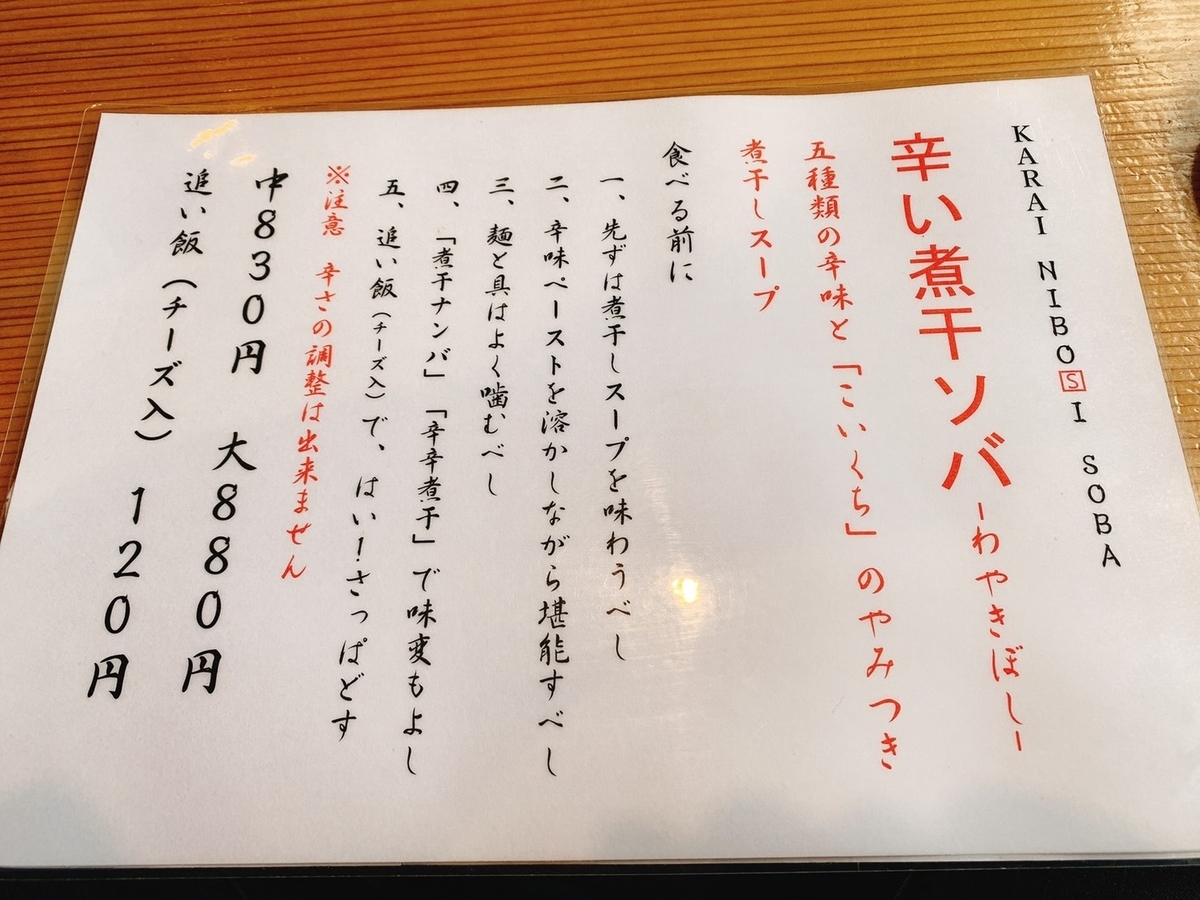 KARAI NIBOSI SOBA
辛い煮干ソバーわやきぼしー
五種類の辛味と「こいくち」のやみつき
煮干しスープ
食べる前に
一、先ずは煮干しスープを味わうべし
二、辛味ペーストを溶かしながら堪能すべし
三、麺と具はよく噛むべし
四、「煮干ナンバ」「辛辛煮干」で味変もよし
五、追い飯(チーズ入)で、はい!さっぱどす
※注意 辛さの調整は出来ません
中830円 大880円
追い飯(チーズ入) 120円